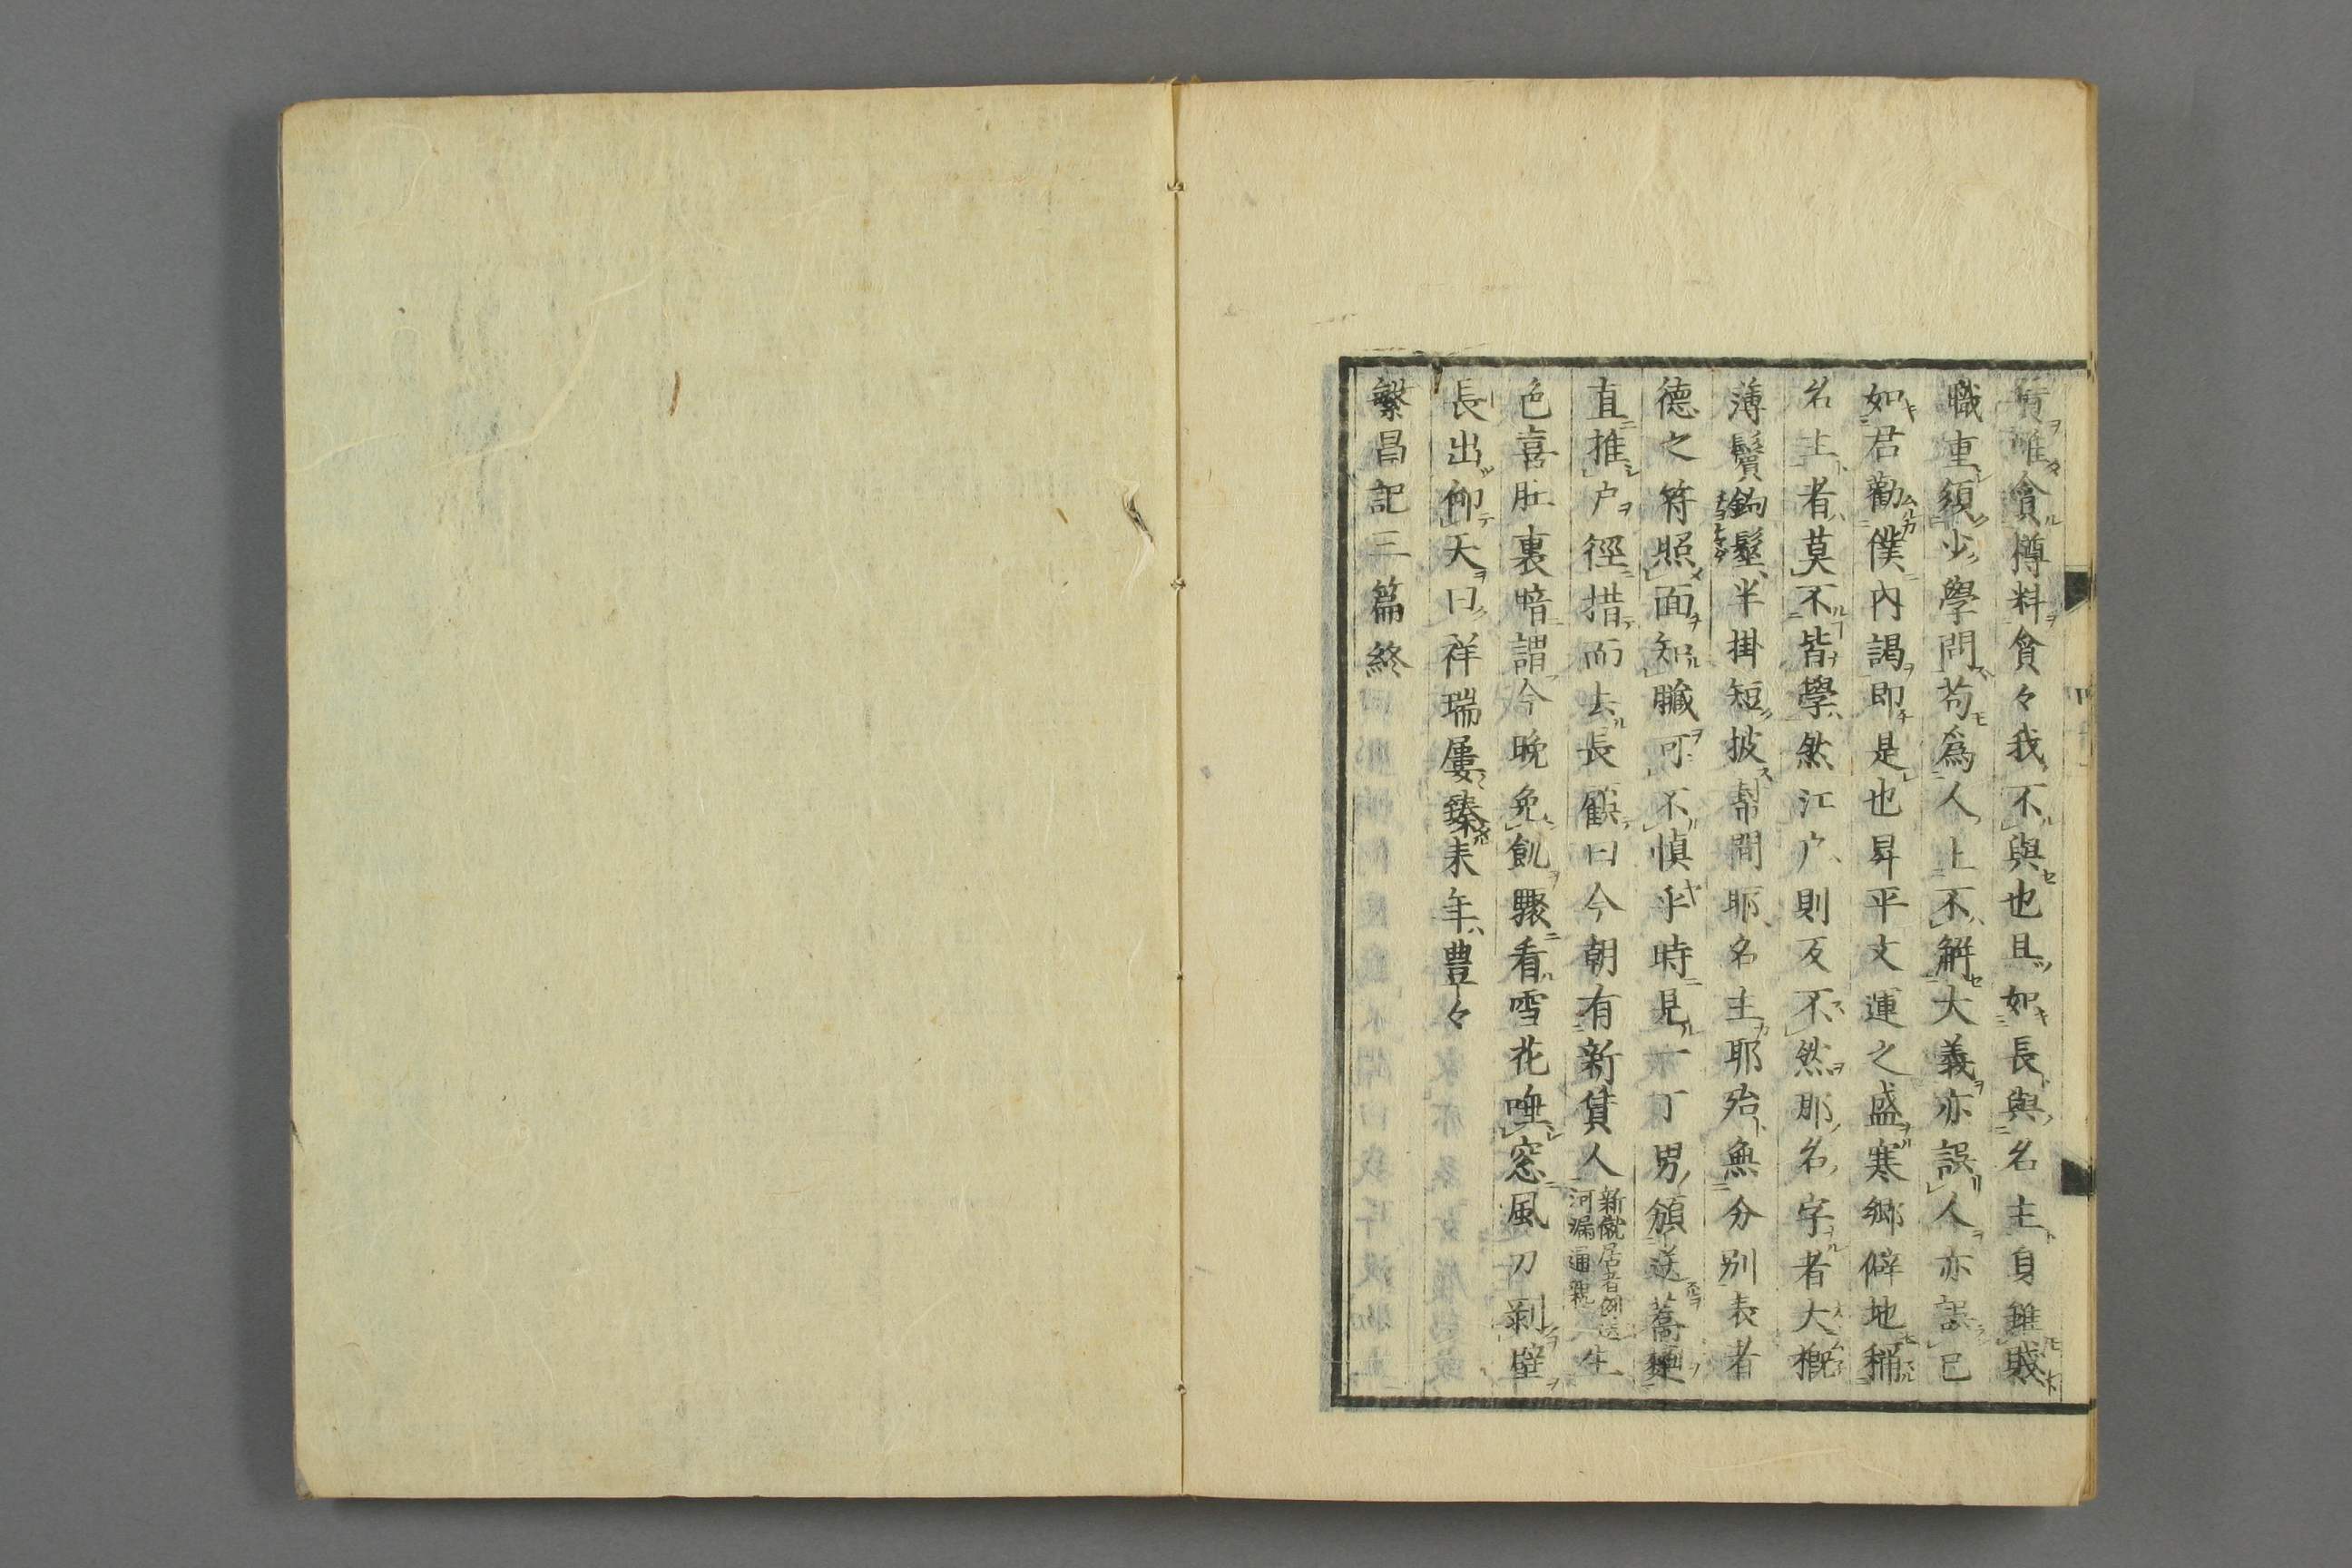 貪樽料貪々我不與也且如長與名主身雖賤
職重須少學問苟爲人上不解大義亦誤人亦誤己
如君勸僕內謁即是也昇平文運之盛寒鄉僻地稱
名主者莫不皆學然江户則反不然那名字者大概
薄鬢鉤髷半掛短披幇間耶名主耶殆無分別表者
德之符照面知臟可不慎乎時見一丁男頒送蕎麺
直推户徑措而去長顧曰今朝有新賃人新僦居者例送河漏通親生
色喜肚裏暗謂今晩免飢驟看雪花唾窓風刀剥壁
長出仰天曰祥瑞屢臻来年豊々
繁昌記三篇終